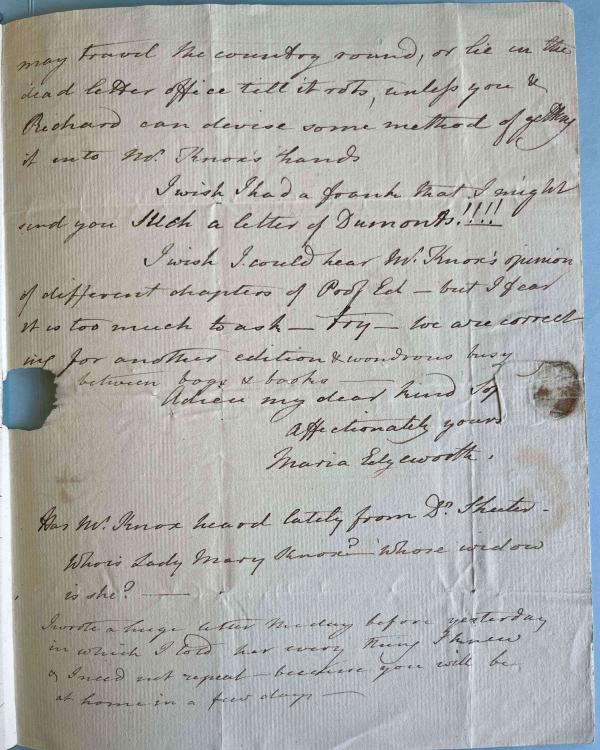 may travel the country round, or lie in the
dead letter office till it rots, unless you &
Richard can devise some method of getting
it into Mr. Knox's hands
I wish I had a frank that I might
send you such a letter of Dumonts!!!!
I wish I could hear Mr. Knox's opinion
of different chapters of Prof Ed — but I fear
it is too much to ask — Try — We are correct
ing for another edition & wondrous busy
between bogs & books
Adieu my dear kind So
Affectionately yours
Maria Edgeworth.
Has Mr. Knox heard lately from Dr.
Who is Lady Mary Knox? Whose widow
is she? —
I wrote a huge letter the day before yesterday
in which I told her every thing I knew
& I need not repeat — because you will be
at home in a few days —